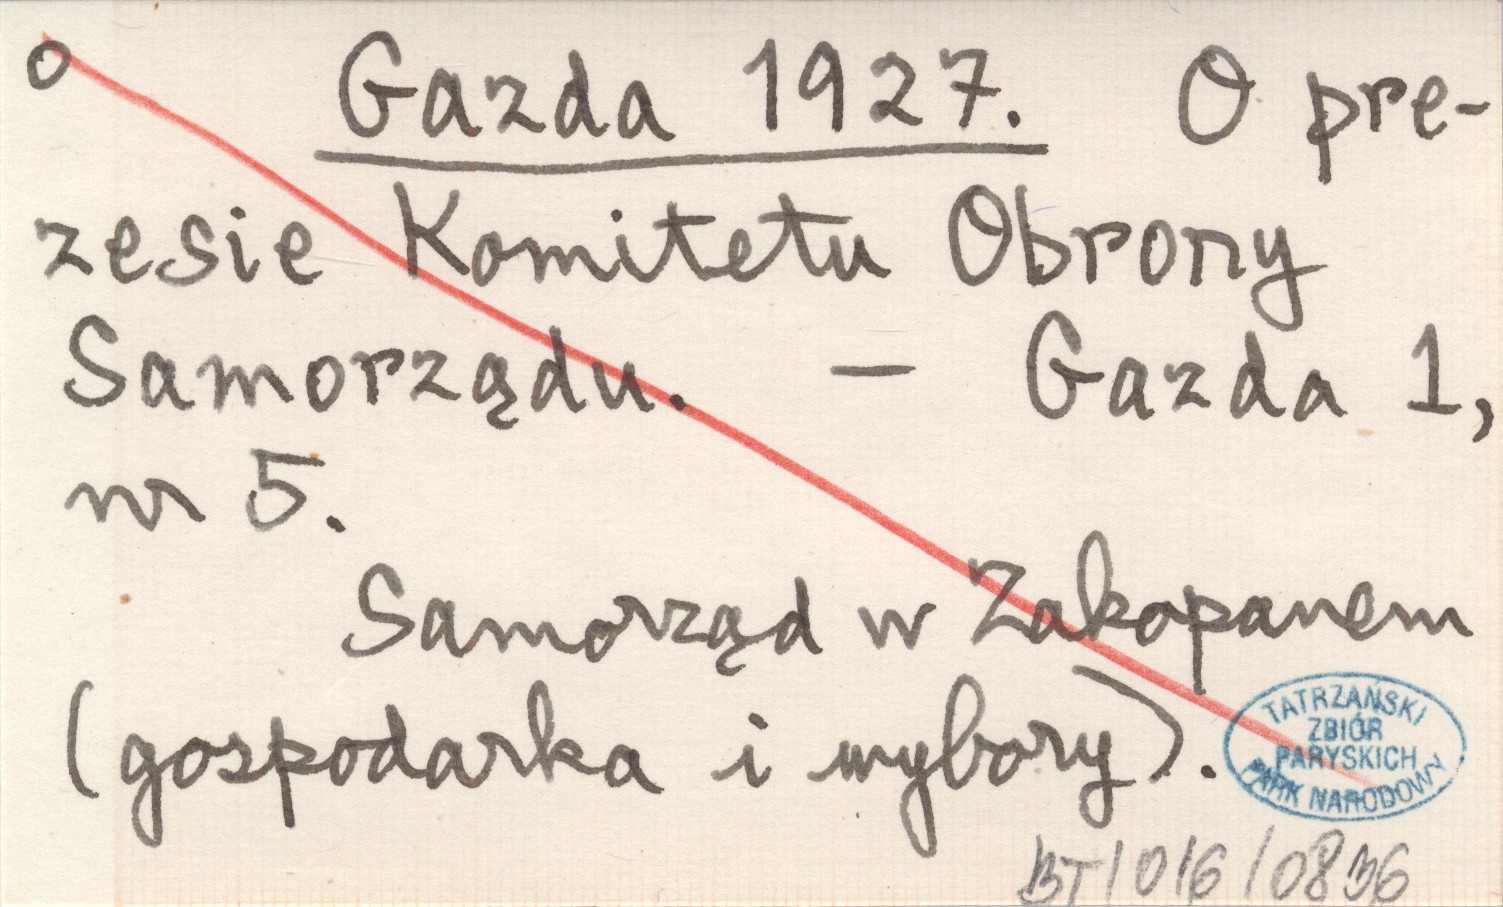 o Gazda 1927. O pre-
zesie Komitetu Obrony
Samorządu. — Gazda 1,
nr 5.
Samorząd w Zakopanem
(gospodarka i wybory).
TATRZAŃSKI
ZBIÓR
PARYSKICH
PARK NARODOWY
BT/016/0836